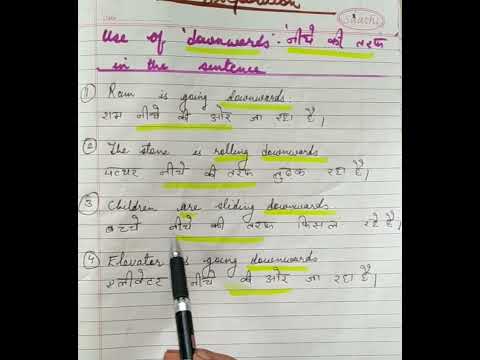 Preposition
saachi
Use of 'downwards' :- 'नीचे की तरफ'
in the sentence
① Ram is going downwards.
राम नीचे की ओर जा रहा है।
② The stone is rolling downwards
पत्थर नीचे की तरफ लुढ़क रहा है।
③ Children are sliding downwards
बच्चे नीचे की तरफ फिसल रहे हैं।
④ Elevator is going downwards
एलीवेटर नीचे की ओर जा रहा है।